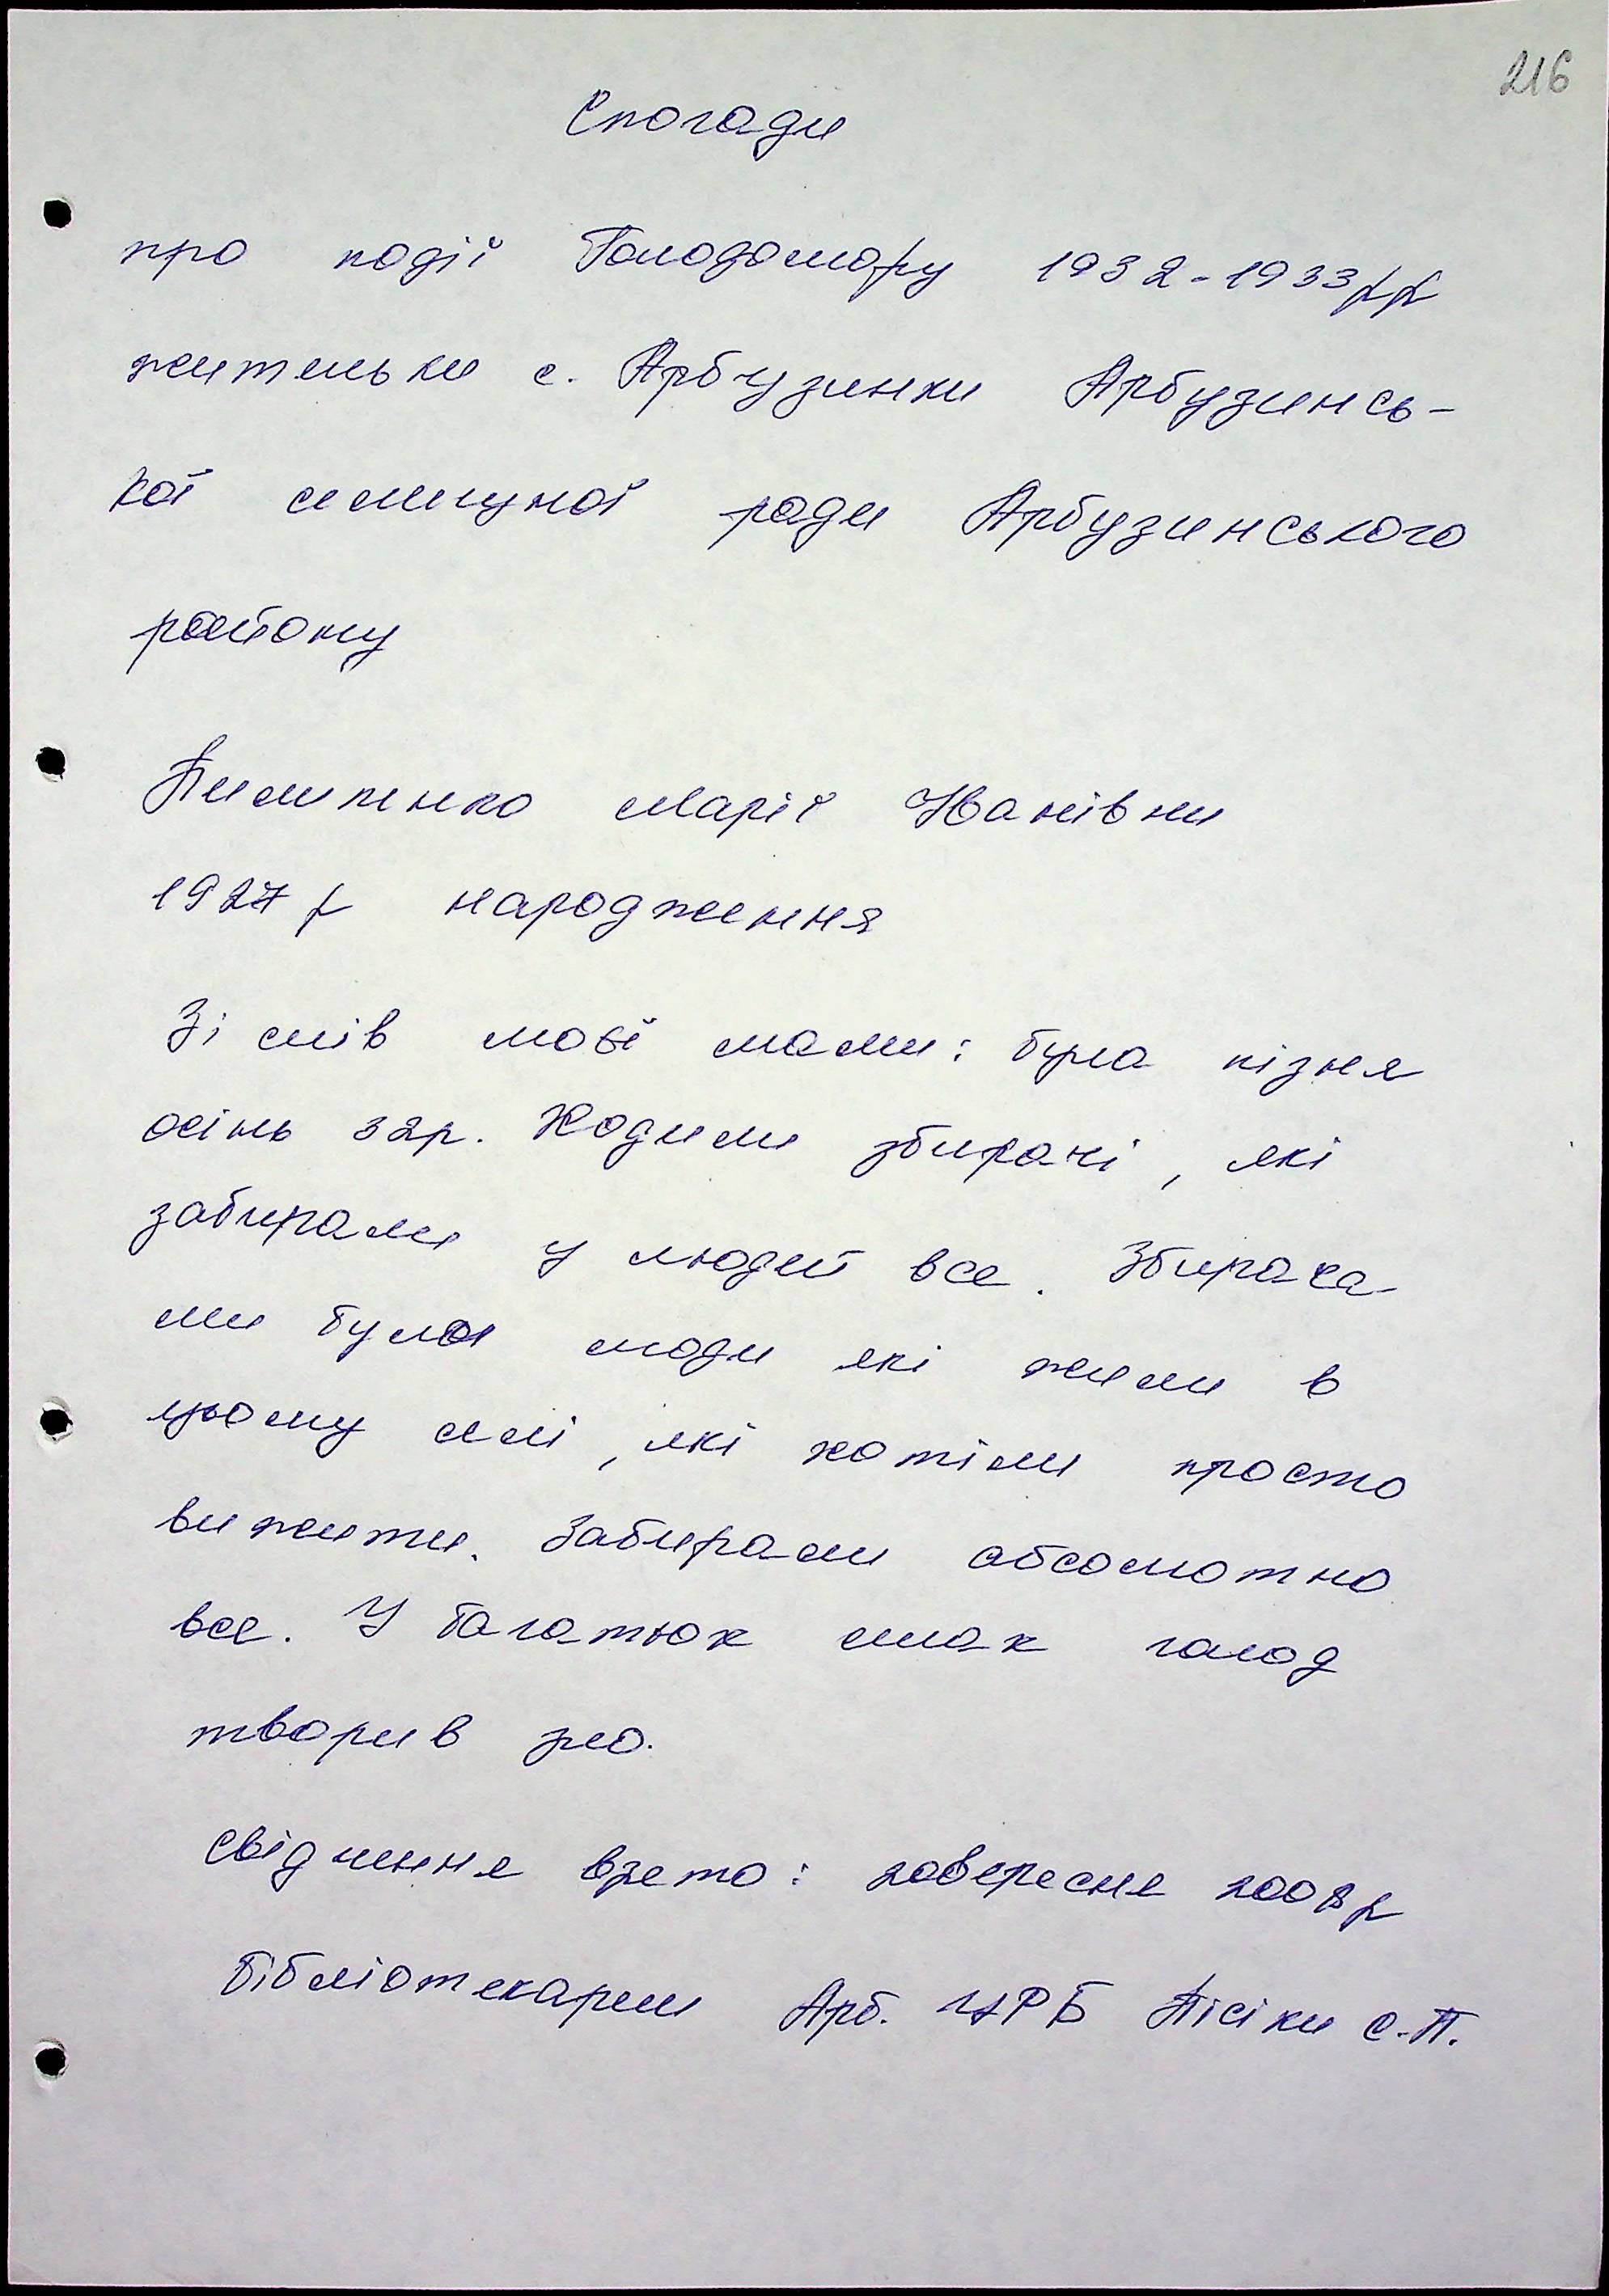 216
Спогади
про події Голодомору 1932-1933рр
жительки с. Арбузинки Арбузинсь-
кої селищної ради Арбузинського
району
Пилипенко Марії Іванівни
1927 р народження
Зі слів моєї мами: була пізня
осінь 32р. Ходили збирачі, які
забирали у людей все. Збирача-
ми були люди які жили в
цьому селі, які хотіли просто
вижити. Забирали абсолютно
все. У багатьох смак голод
творив зло.
Свідчення взято: 20 вересня 2008 р
бібліотекарем Арб. ЦРБ Пісіки С.П.